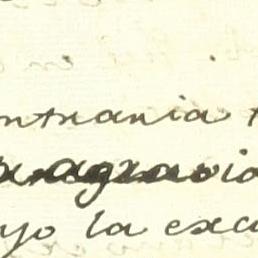 ntraria
agravio
yo la exc